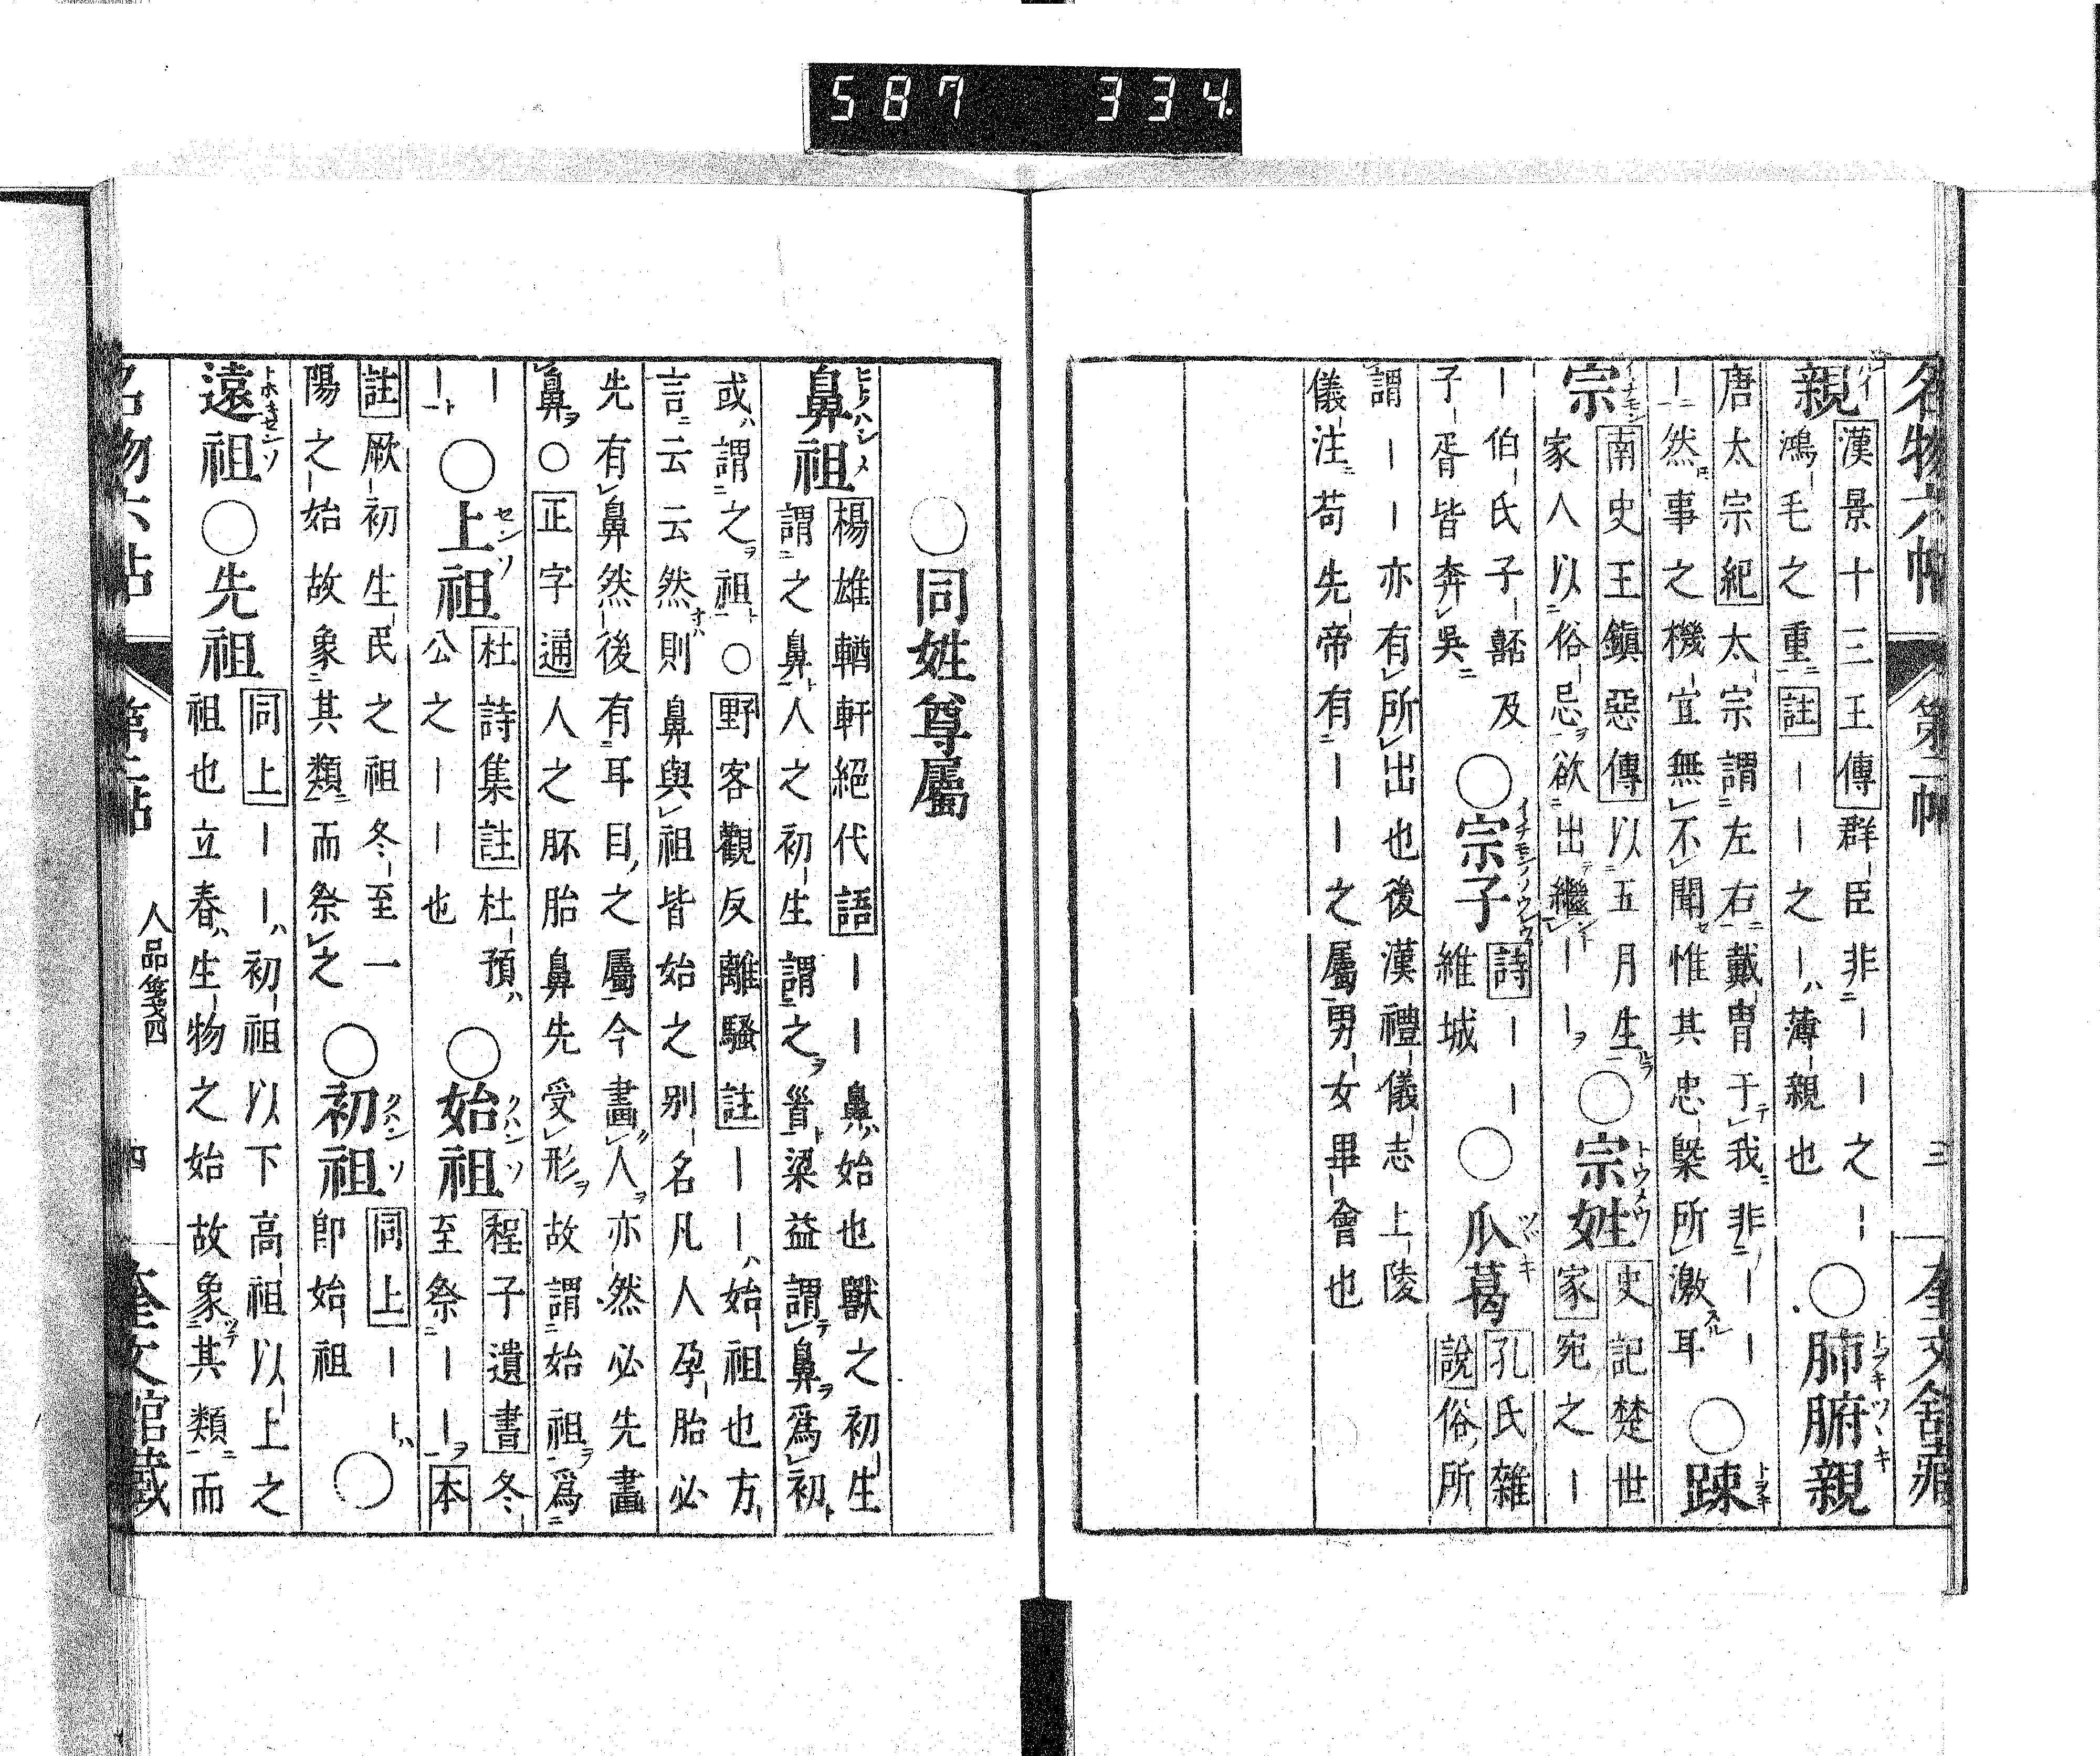 587 334
名物六帖 第二帖 三 奎文館藏
親 漢景十三王傳 群臣非――之―
鴻毛之重 註 ――之―薄親也
○肺腑親
唐太宗紀 太宗謂左右戴胄于我非――
―然事之機宜無不聞惟其忠槩所激耳
○踈
宗 南史王鎮惡傳 以五月生
家人以俗忌欲出繼――
○宗姓 史記楚世
家 宛之―
―伯氏子嚭及
子胥皆奔吳
○宗子 詩 ――
維城
○瓜葛 孔氏雜
說 俗所
謂―――亦有所出也後漢禮儀志上陵
儀注苟先帝有――之屬男女畢會也
○同姓尊屬
鼻祖 楊雄輶軒絕代語 ――鼻始也獸之初生
謂之鼻人之初生謂之首梁益謂鼻爲初
或謂之祖○野客觀 反離騷註 ――始祖也方
言云云然則鼻與祖皆始之別名凡人孕胎必
先有鼻然後有耳目之屬今畫人亦然必先畫
鼻○正字通 人之胚胎鼻先受形故謂始祖爲
――
○上祖 杜詩集註 杜預
公之――也
○始祖 程子遺書 冬
至祭――本
註 厥初生民之祖冬至一
陽之始故象其類而祭之
○初祖 同上 ――
即始祖
○
遠祖○先祖 同上 ――初祖以下高祖以上之
祖也立春生物之始故象其類而
人品箋四
四